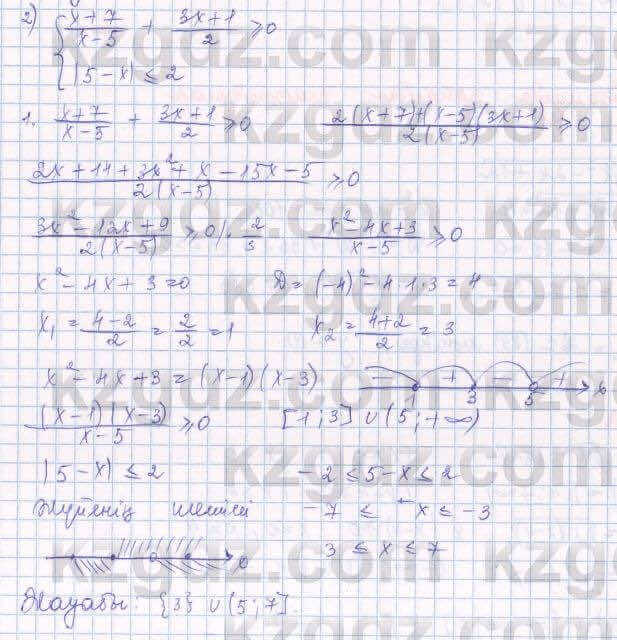 2) { (x+7)/(x-5) + (3x+1)/2 ≥ 0
|5-x| ≤ 2
1. (x+7)/(x-5) + (3x+1)/2 ≥ 0 (2(x+7)+(x-5)(3x+1))/(2(x-5)) ≥ 0
(2x+14+3x²+x-15x-5)/(2(x-5)) ≥ 0
(3x²-12x+9)/(2(x-5)) ≥ 0 |· 2/3 (x²-4x+3)/(x-5) ≥ 0
x²-4x+3=0 D=(-4)²-4·1·3=4
x₁=(4-2)/2=2/2=1 x₂=(4+2)/2=3
x²-4x+3=(x-1)(x-3) - + - + x
1 3 5
((x-1)(x-3))/(x-5) ≥ 0 [1;3]∪(5;+∞)
|5-x| ≤ 2 -2 ≤ 5-x ≤ 2
Жүйенің шешімі -7 ≤ -x ≤ -3
3 ≤ x ≤ 7
x
Жауабы: {3}∪(5;7].
kzgdz.com